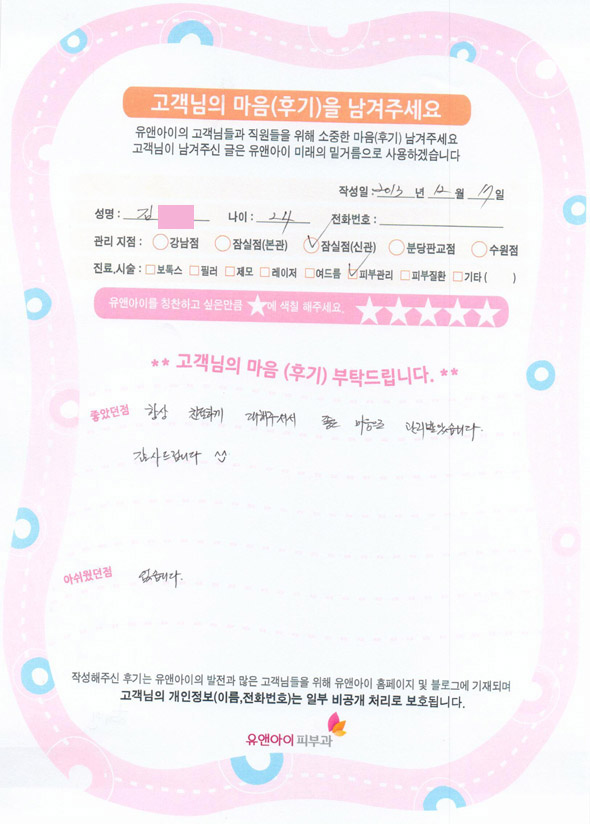 고객님의 마음(후기)을 남겨주세요
유앤아이의 고객님들과 직원들을 위해 소중한 마음(후기) 남겨주세요
고객님이 남겨주신 글은 유앤아이 미래의 밑거름으로 사용하겠습니다
작성일 : 2013 년 12 월 17 일
성명 : 김 나이 : 24 전화번호 :
관리 지점 : 강남점 잠실점(본관) 잠실점(신관) 분당판교점 수원점
진료,시술 : 보톡스 필러 제모 레이저 여드름 피부관리 피부질환 기타 ( )
유앤아이를 칭찬하고 싶은만큼 ★에 색칠 해주세요. ★★★★★
** 고객님의 마음 (후기) 부탁드립니다. **
좋았던점 항상 친절하게 대해주셔서 좋은 마음으로 관리받았습니다.
감사드립니다 ^^
아쉬웠던점 없습니다.
작성해주신 후기는 유앤아이의 발전과 많은 고객님들을 위해 유앤아이 홈페이지 및 블로그에 기재되며
고객님의 개인정보(이름,전화번호)는 일부 비공개 처리로 보호됩니다.
유앤아이 피부과